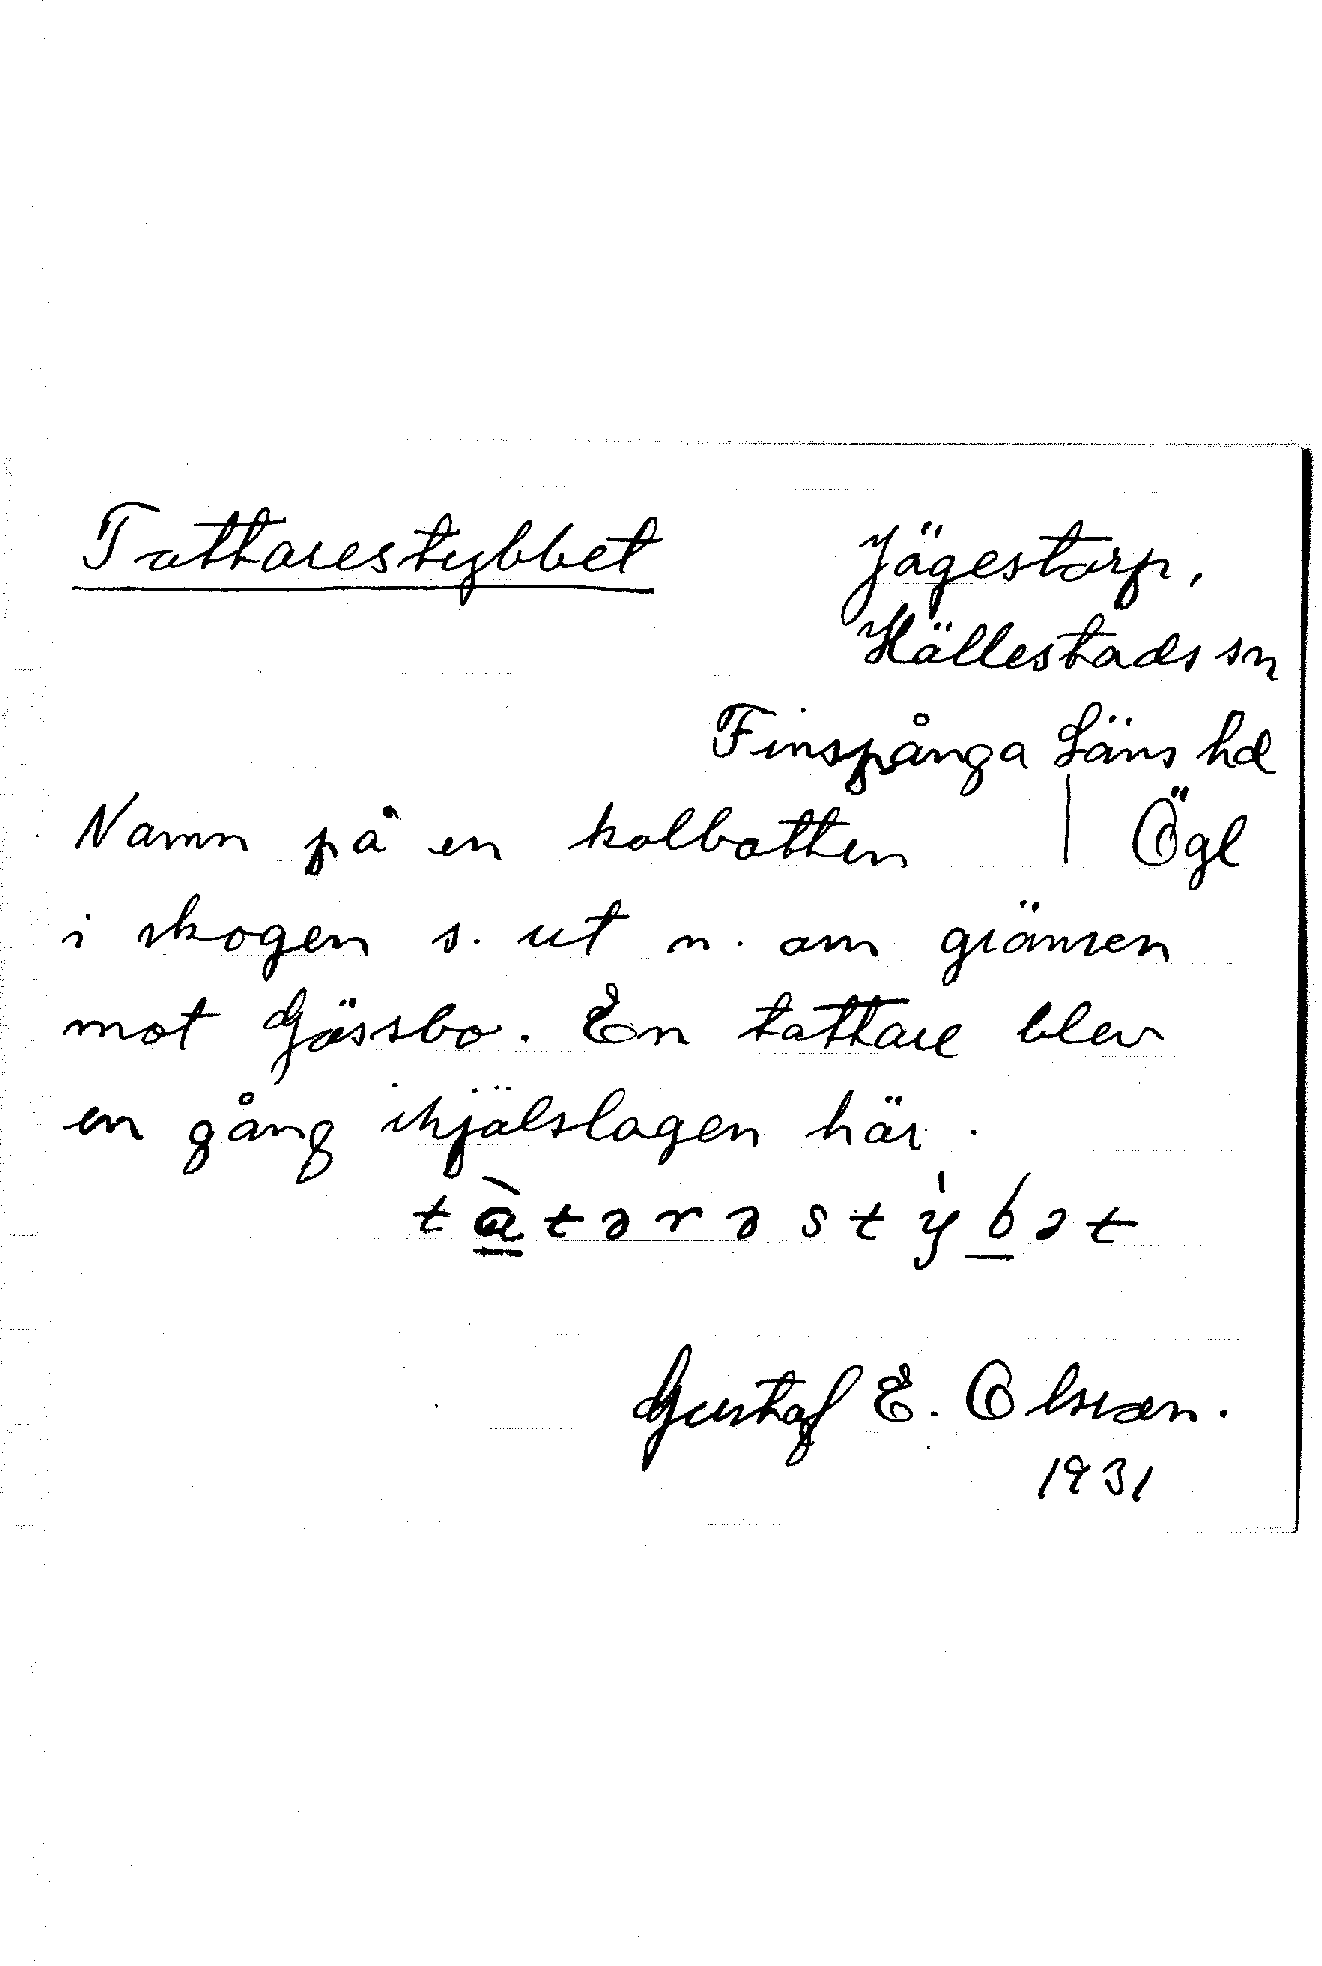 Tattarestybbet
Jägestorp,
Hällestads sn
Finspånga Läns hd
Namn på en kolbotten | Ögl
i skogen s. ut n. om gränsen
mot Gässbo. En tattare blev
en gång ihjälslagen här.
tàtərəstýbət
Gustaf E. Olsson.
1931